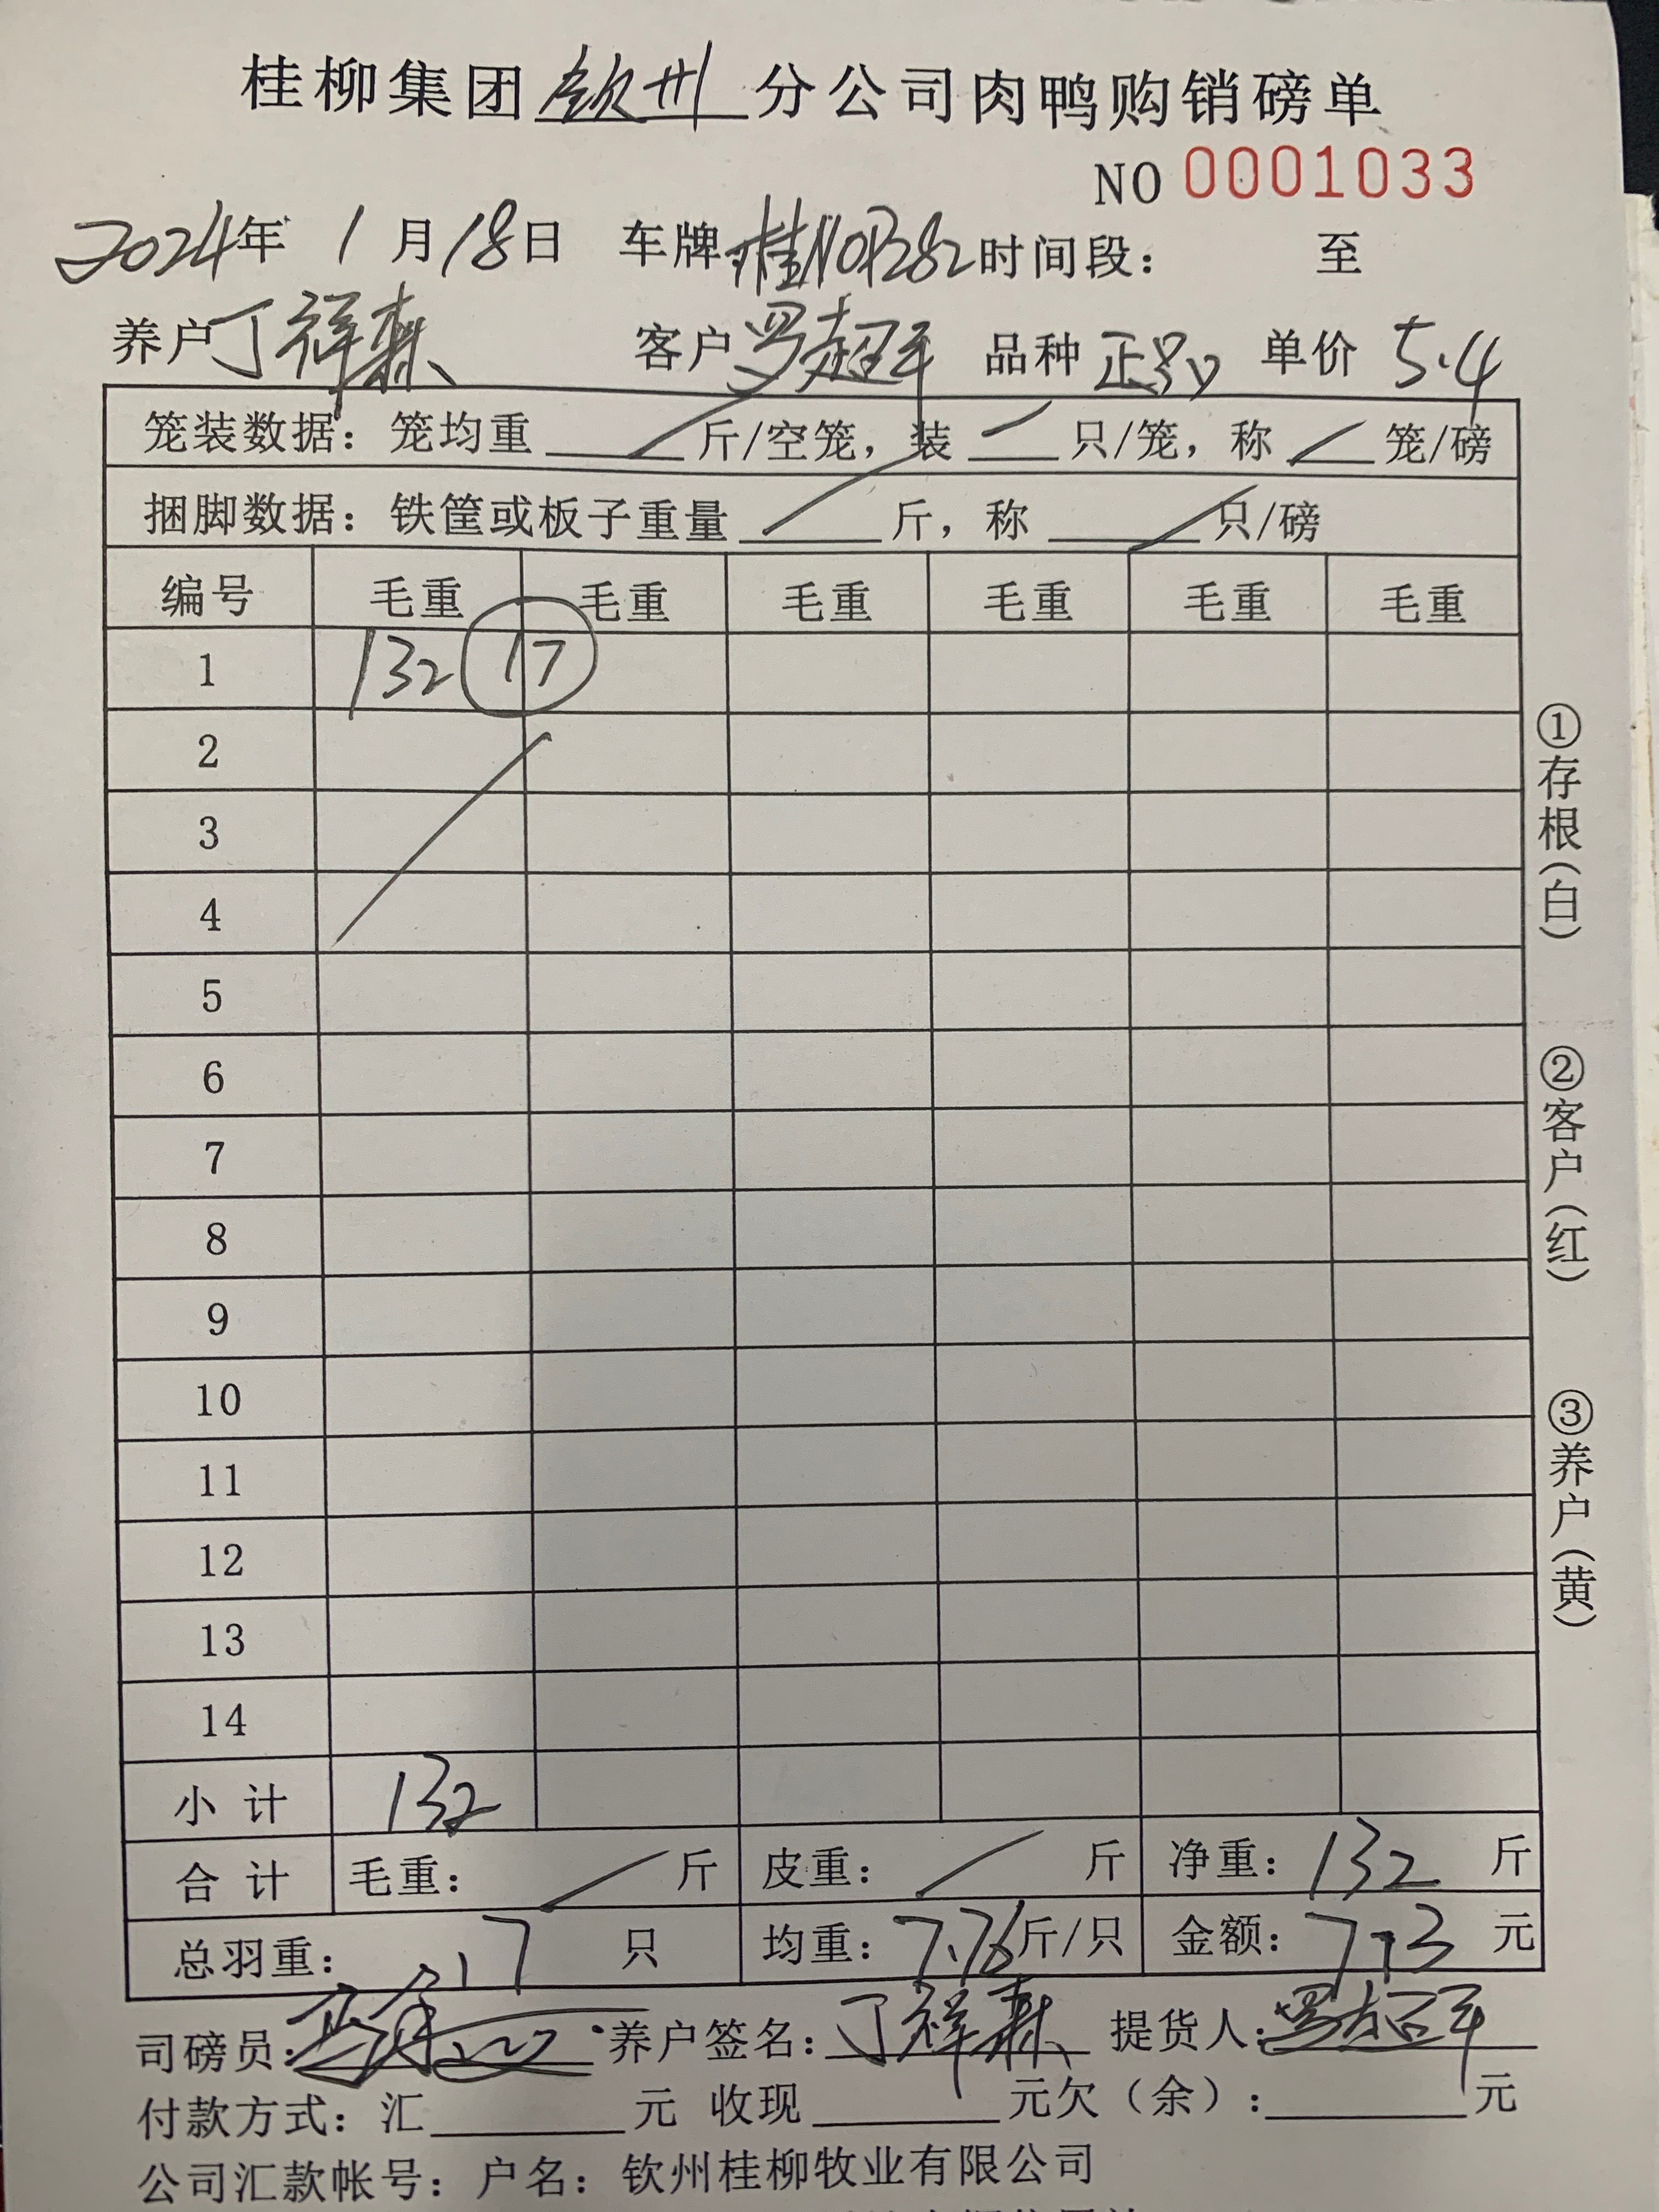 桂柳集团钦州分公司肉鸭购销磅单
NO 0001033
2024年 1月18日 车牌 桂N0P282 时间段： 至
养户 丁祥森 客户 罗超平 品种 正只 单价 5.4
笼装数据：笼均重 / 斤/空笼，装 / 只/笼，称 / 笼/磅
捆脚数据：铁筐或板子重量 / 斤，称 / 只/磅
编号 毛重 毛重 毛重 毛重 毛重 毛重
1 132 17
2
3
4
5
6
7
8
9
10
11
12
13
14
小计 132
合计 毛重： / 斤 皮重： / 斤 净重：132 斤
总羽重：17 只 均重：7.76斤/只 金额：713 元
司磅员： 养户签名：丁祥森 提货人：罗超平
付款方式：汇 元 收现 元欠（余）： 元
公司汇款帐号：户名：钦州桂柳牧业有限公司
①存根（白）
②客户（红）
③养户（黄）